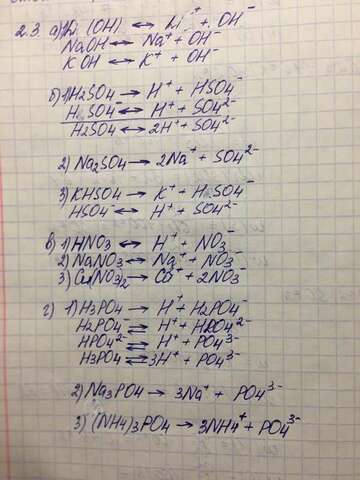 2.3. а) Li(OH) ↔ Li⁺ + OH⁻
NaOH ↔ Na⁺ + OH⁻
KOH ↔ K⁺ + OH⁻
б) 1) H2SO4 → H⁺ + HSO4⁻
HSO4⁻ ↔ H⁺ + SO4²⁻
H2SO4 ↔ 2H⁺ + SO4²⁻
2) Na2SO4 → 2Na⁺ + SO4²⁻
3) KHSO4 → K⁺ + HSO4⁻
HSO4⁻ ↔ H⁺ + SO4²⁻
в) 1) HNO3 ↔ H⁺ + NO3⁻
2) NaNO3 ↔ Na⁺ + NO3⁻
3) Ca(NO3)2 → Ca⁺ + 2NO3⁻
г) 1) H3PO4 → H⁺ + H2PO4⁻
H2PO4⁻ ⇌ H⁺ + HPO4²⁻
HPO4²⁻ ⇌ H⁺ + PO4³⁻
H3PO4 ⇌ 3H⁺ + PO4³⁻
2) Na3PO4 → 3Na⁺ + PO4³⁻
3) (NH4)3PO4 → 3NH4⁺ + PO4³⁻